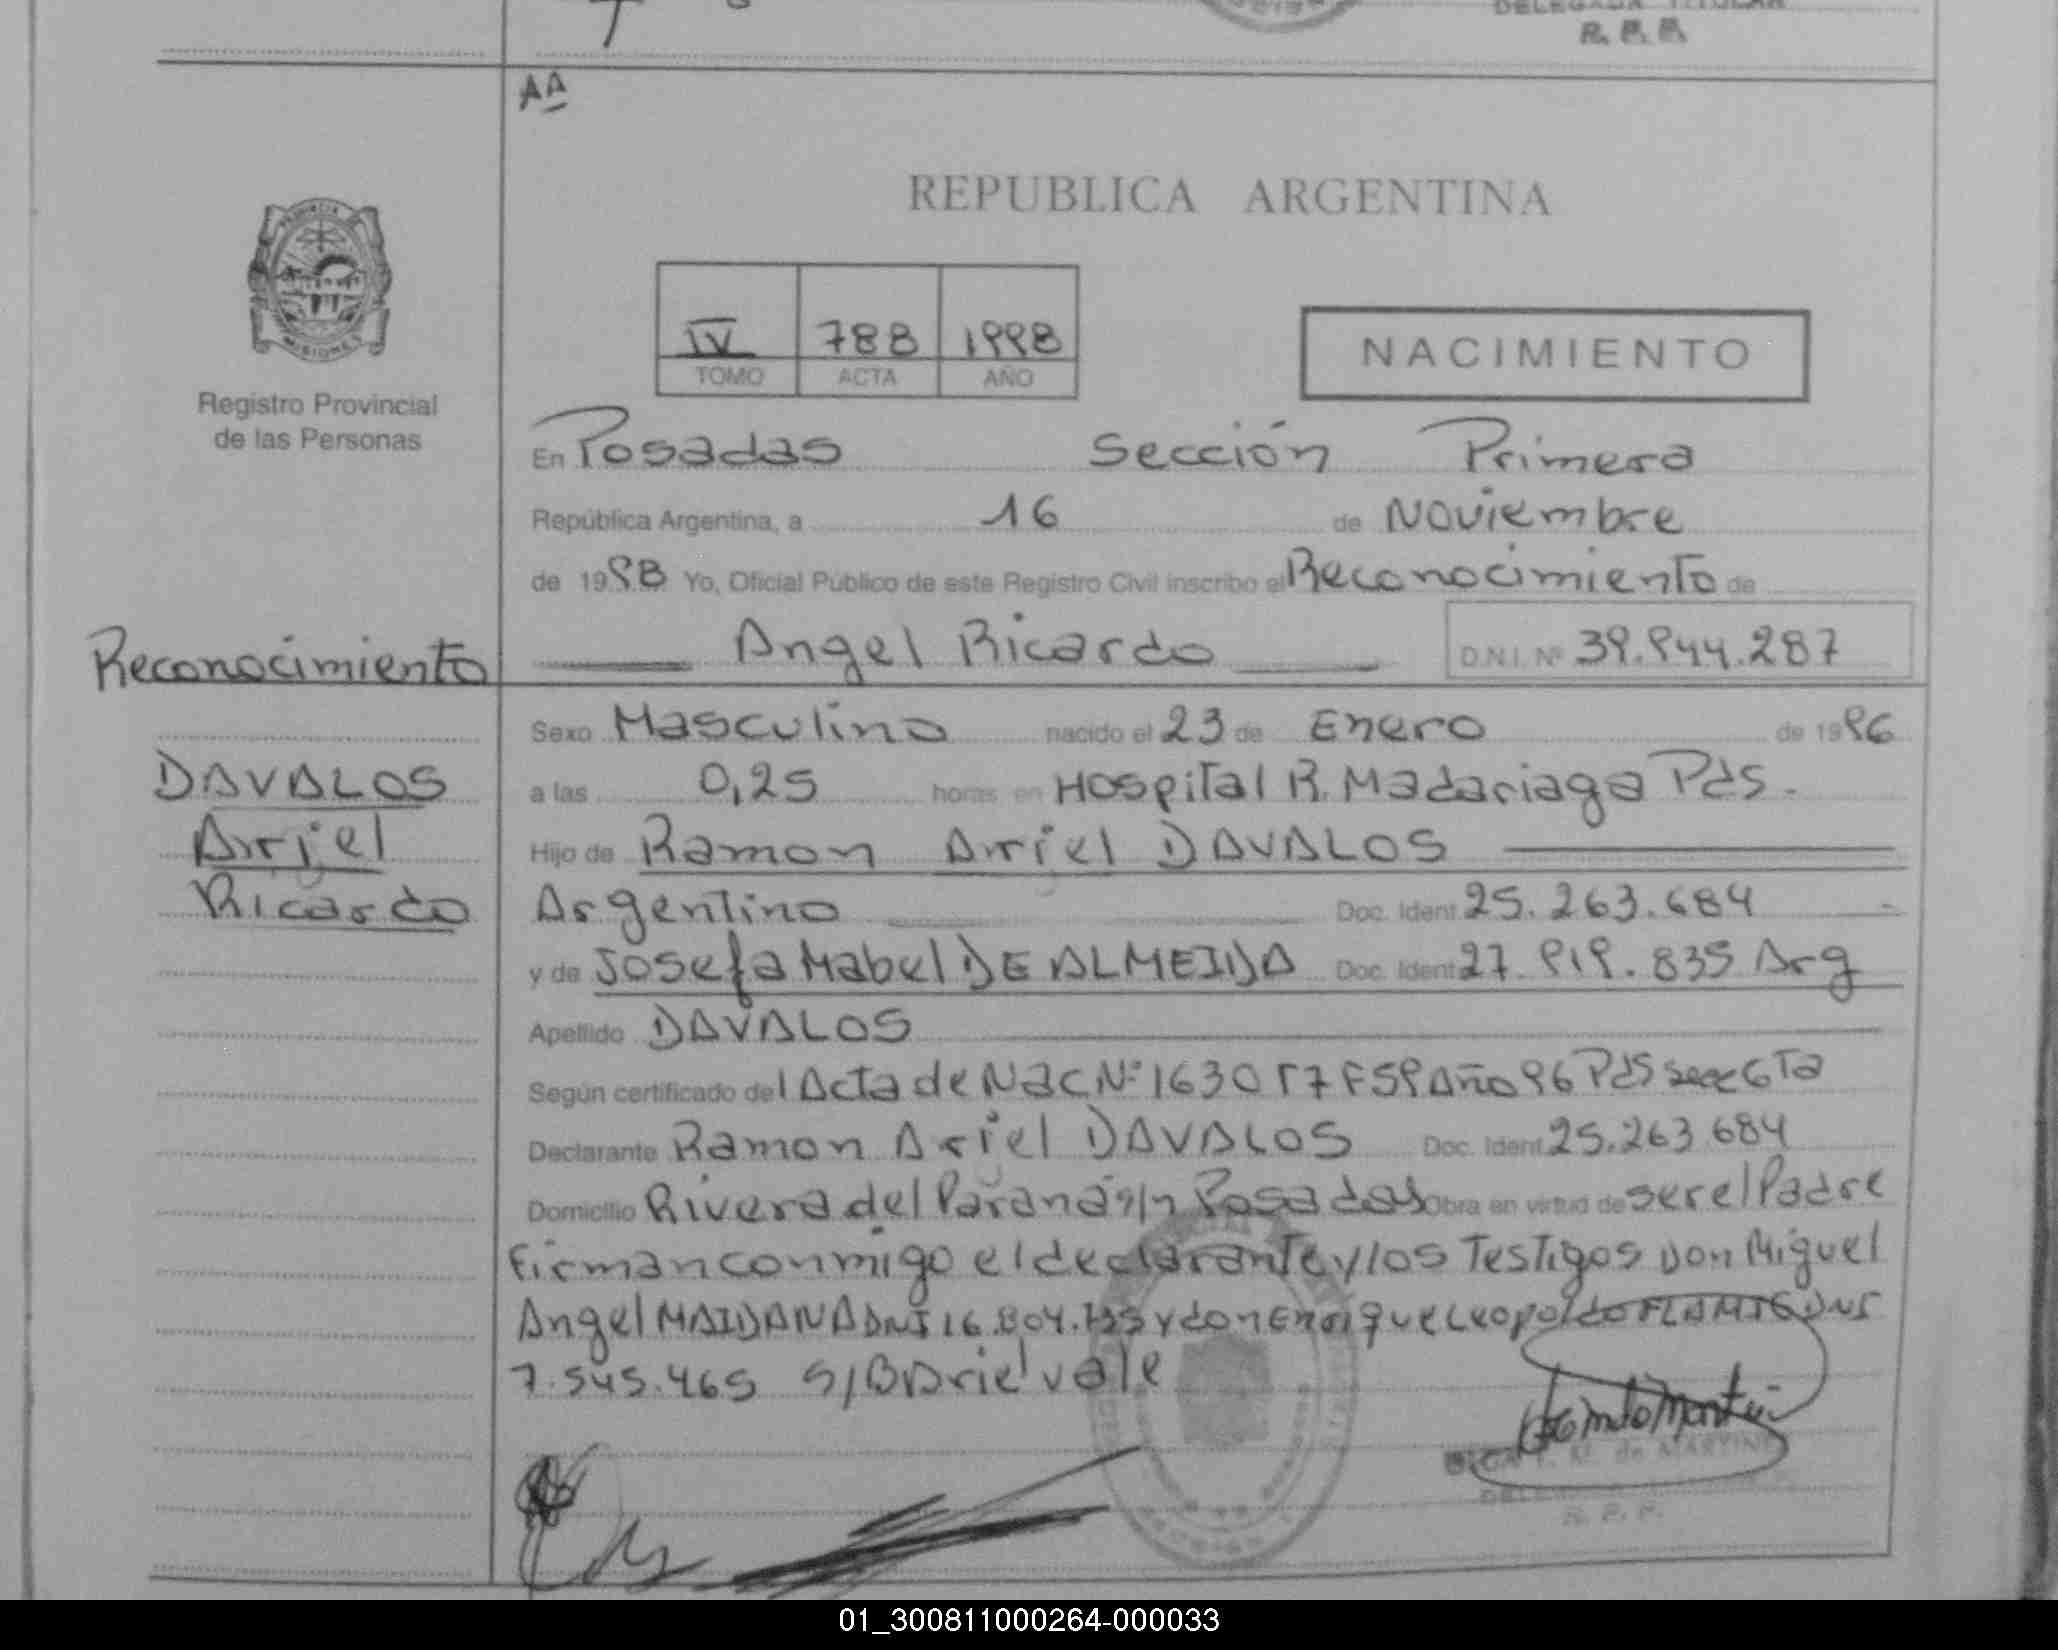 DELEGADA TITULAR
R. P. P.
AA
REPUBLICA ARGENTINA
PROVINCIA
MISIONES
IV 788 1998
TOMO ACTA AÑO
NACIMIENTO
Registro Provincial
de las Personas
En Posadas Sección Primera
República Argentina, a 16 de Noviembre
de 1998 Yo, Oficial Público de este Registro Civil inscribo el Reconocimiento de
Angel Ricardo D.N.I. Nº 39.944.287
Reconocimiento
DAVALOS
Arjel
Ricardo
Sexo Masculino nacido el 23 de Enero de 1996
a las 0,25 horas en Hospital R. Madariaga Pds.
Hijo de Ramon Arriel DAVALOS
Argentino Doc. Ident. 25.263.684
y de Josefa Mabel DE ALMEIDA Doc. Ident. 27.919.835 Arg
Apellido DAVALOS
Según certificado del Acta de Nac Nº 1630 T7 F59 Año 96 Pds secc 6Ta
Declarante Ramon Ariel DAVALOS Doc. Ident. 25.263.684
Domicilio Rivera del Paraná s/n Posadas Obra en virtud de ser el Padre
Firman conmigo el declarante y los Testigos Don Miguel
Angel MAIDANA DNI 16.804. y don Enrique Leopoldo DNI
7.545.465 S/B Ariel vale
de MARTINE
R. P. P.
01_300811000264-000033